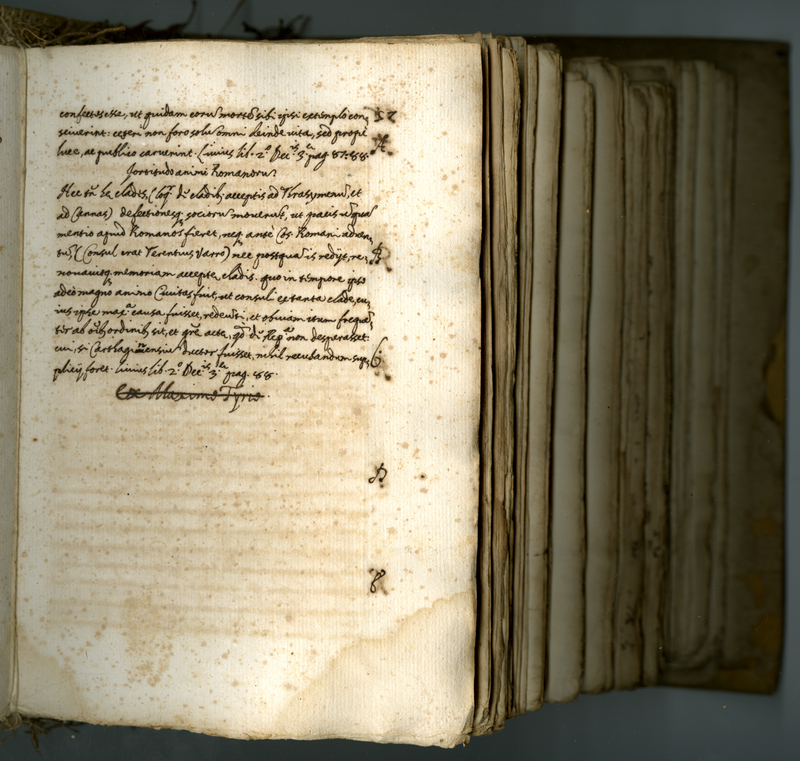 confectos esse, ut quidam eoru mortē sibi ipsi extemplo con, 52
sciuerint: ceteri non foro solū omni deinde vita, sed propē A
luce, ac publico caruerint. Liuius lib. 2° Decis 3ae pag. 87. 88.
Fortitudo animi Romanoru
Nec tn̄ hae clades, (loq̄. dē cladib. acceptis ad Thrasymenū, et
ad Cannas) defectionesq. sociorū mouerūt, ut pacis usquā
mentio apud Romanos fieret, neq. antè Cos. Romani aduen,
tū (Consul erat Terentius Varro) nec postquā is redijt, re, B
nouauitq. memoriam acceptae cladis. quo in tempore ipso
adeò magno animo Ciuitas fuit, ut consuli ex tanta clade, cu,
ius ipse maxa causa fuisset, redeūti, et obuiam itum frequē,
ter ab oīb. ordinib. sit, et grē actae, qd dē Repa non desperasset
cui, si Carthaginensiū ductor fuisset, nihil recusandum sup, C
plicij foret. Liuius lib. 2° Decis 3ae pag. 88.
Ex Maximo Tyrio.
D